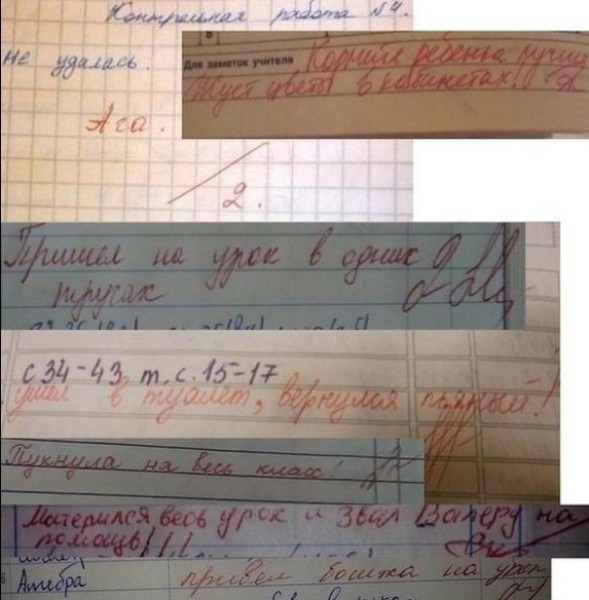 Контрольная работа №4.
Не удалась.
Ага.
2.
Для заметок учителя Кормите ребенка лучше
Жует цветы в кабинетах!
Пришел на урок в одних 2
трусах
с 34-43 т. с. 15-17
ушел в туалет, вернулся пьяный!
Пукнула на весь класс!
Матерился весь урок и звал Валеру на
помощь!!!!
Алгебра привел бомжа на урок